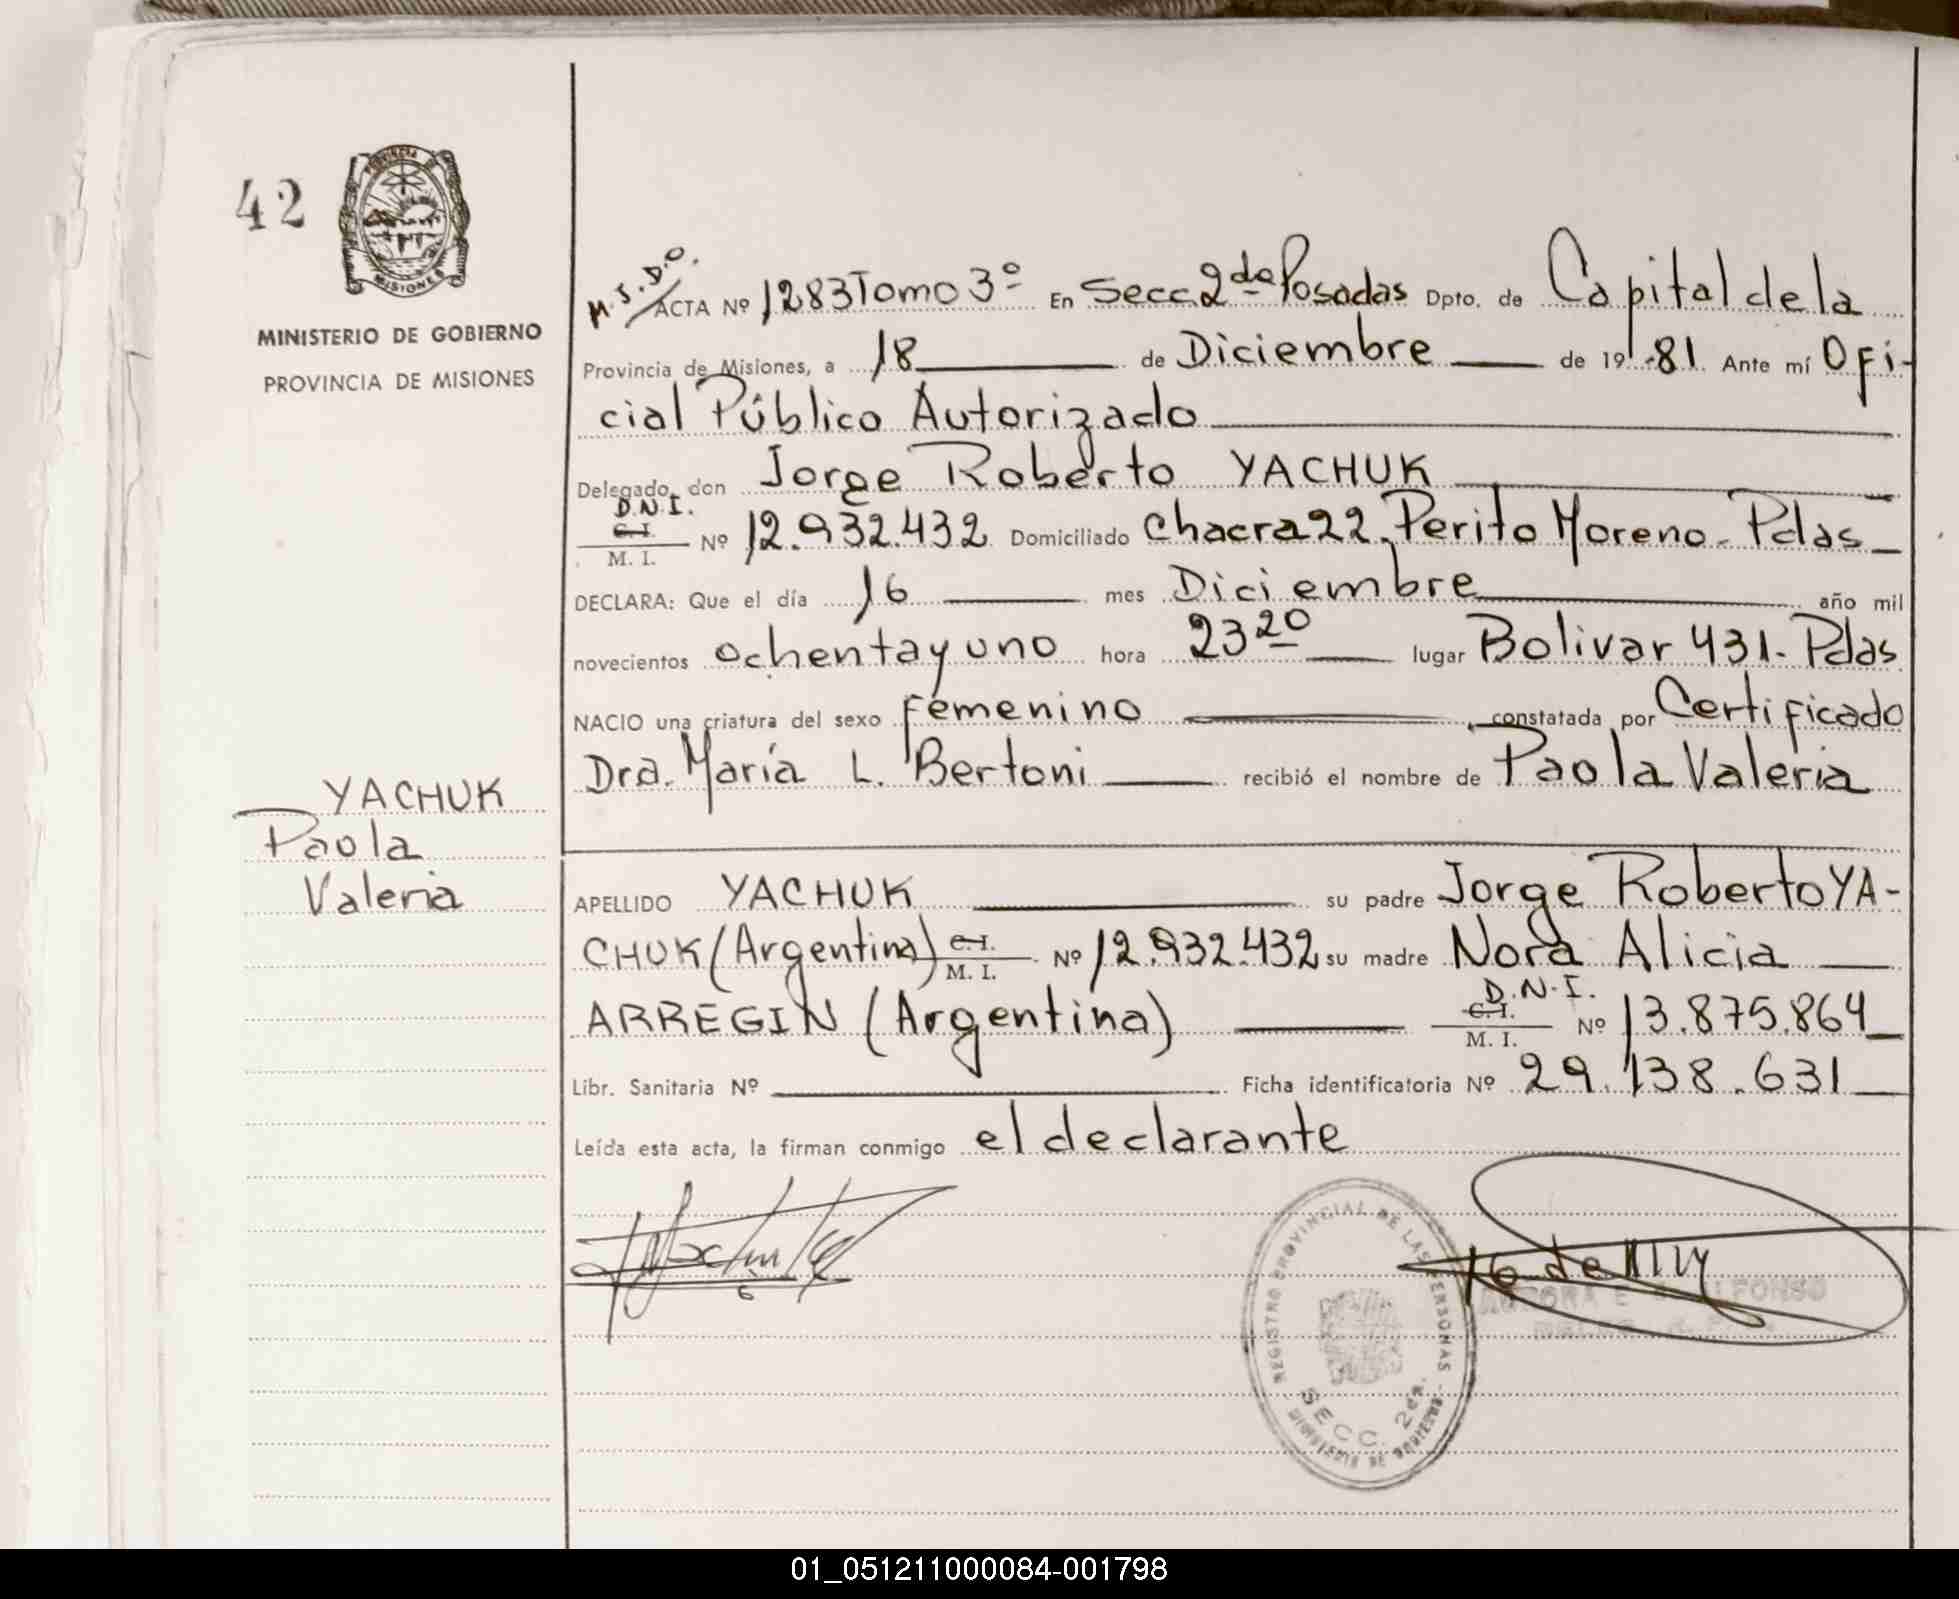 42
PROVINCIA DE
MISIONES
MINISTERIO DE GOBIERNO
PROVINCIA DE MISIONES
M.S.D.O.
ACTA Nº 1283 Tomo 3º En Secc 2da Posadas Dpto. de Capital de la
Provincia de Misiones, a 18 de Diciembre de 19 81 Ante mí Ofi-
cial Público Autorizado
Delegado, don Jorge Roberto YACHUK
D.N.I.
C.I.
M. I. Nº 12.932.432 Domiciliado Chacra 22. Perito Moreno - Pdas
DECLARA: Que el día 16 mes Diciembre año mil
novecientos ochenta y uno hora 23 20 lugar Bolivar 431 - Pdas
NACIO una criatura del sexo femenino constatada por Certificado
Dra. María L. Bertoni recibió el nombre de Paola Valeria
YACHUK
Paola
Valeria
APELLIDO YACHUK su padre Jorge Roberto YA-
CHUK (Argentina) C.I. M. I. Nº 12.932.432 su madre Nora Alicia
ARREGIN (Argentina) D.N.I. C.I. M. I. Nº 13.875.864
Libr. Sanitaria Nº Ficha identificatoria Nº 29.138.631
Leída esta acta, la firman conmigo el declarante
REGISTRO PROVINCIAL DE LAS PERSONAS
SECC. 2da.
ALFONSO
01_051211000084-001798